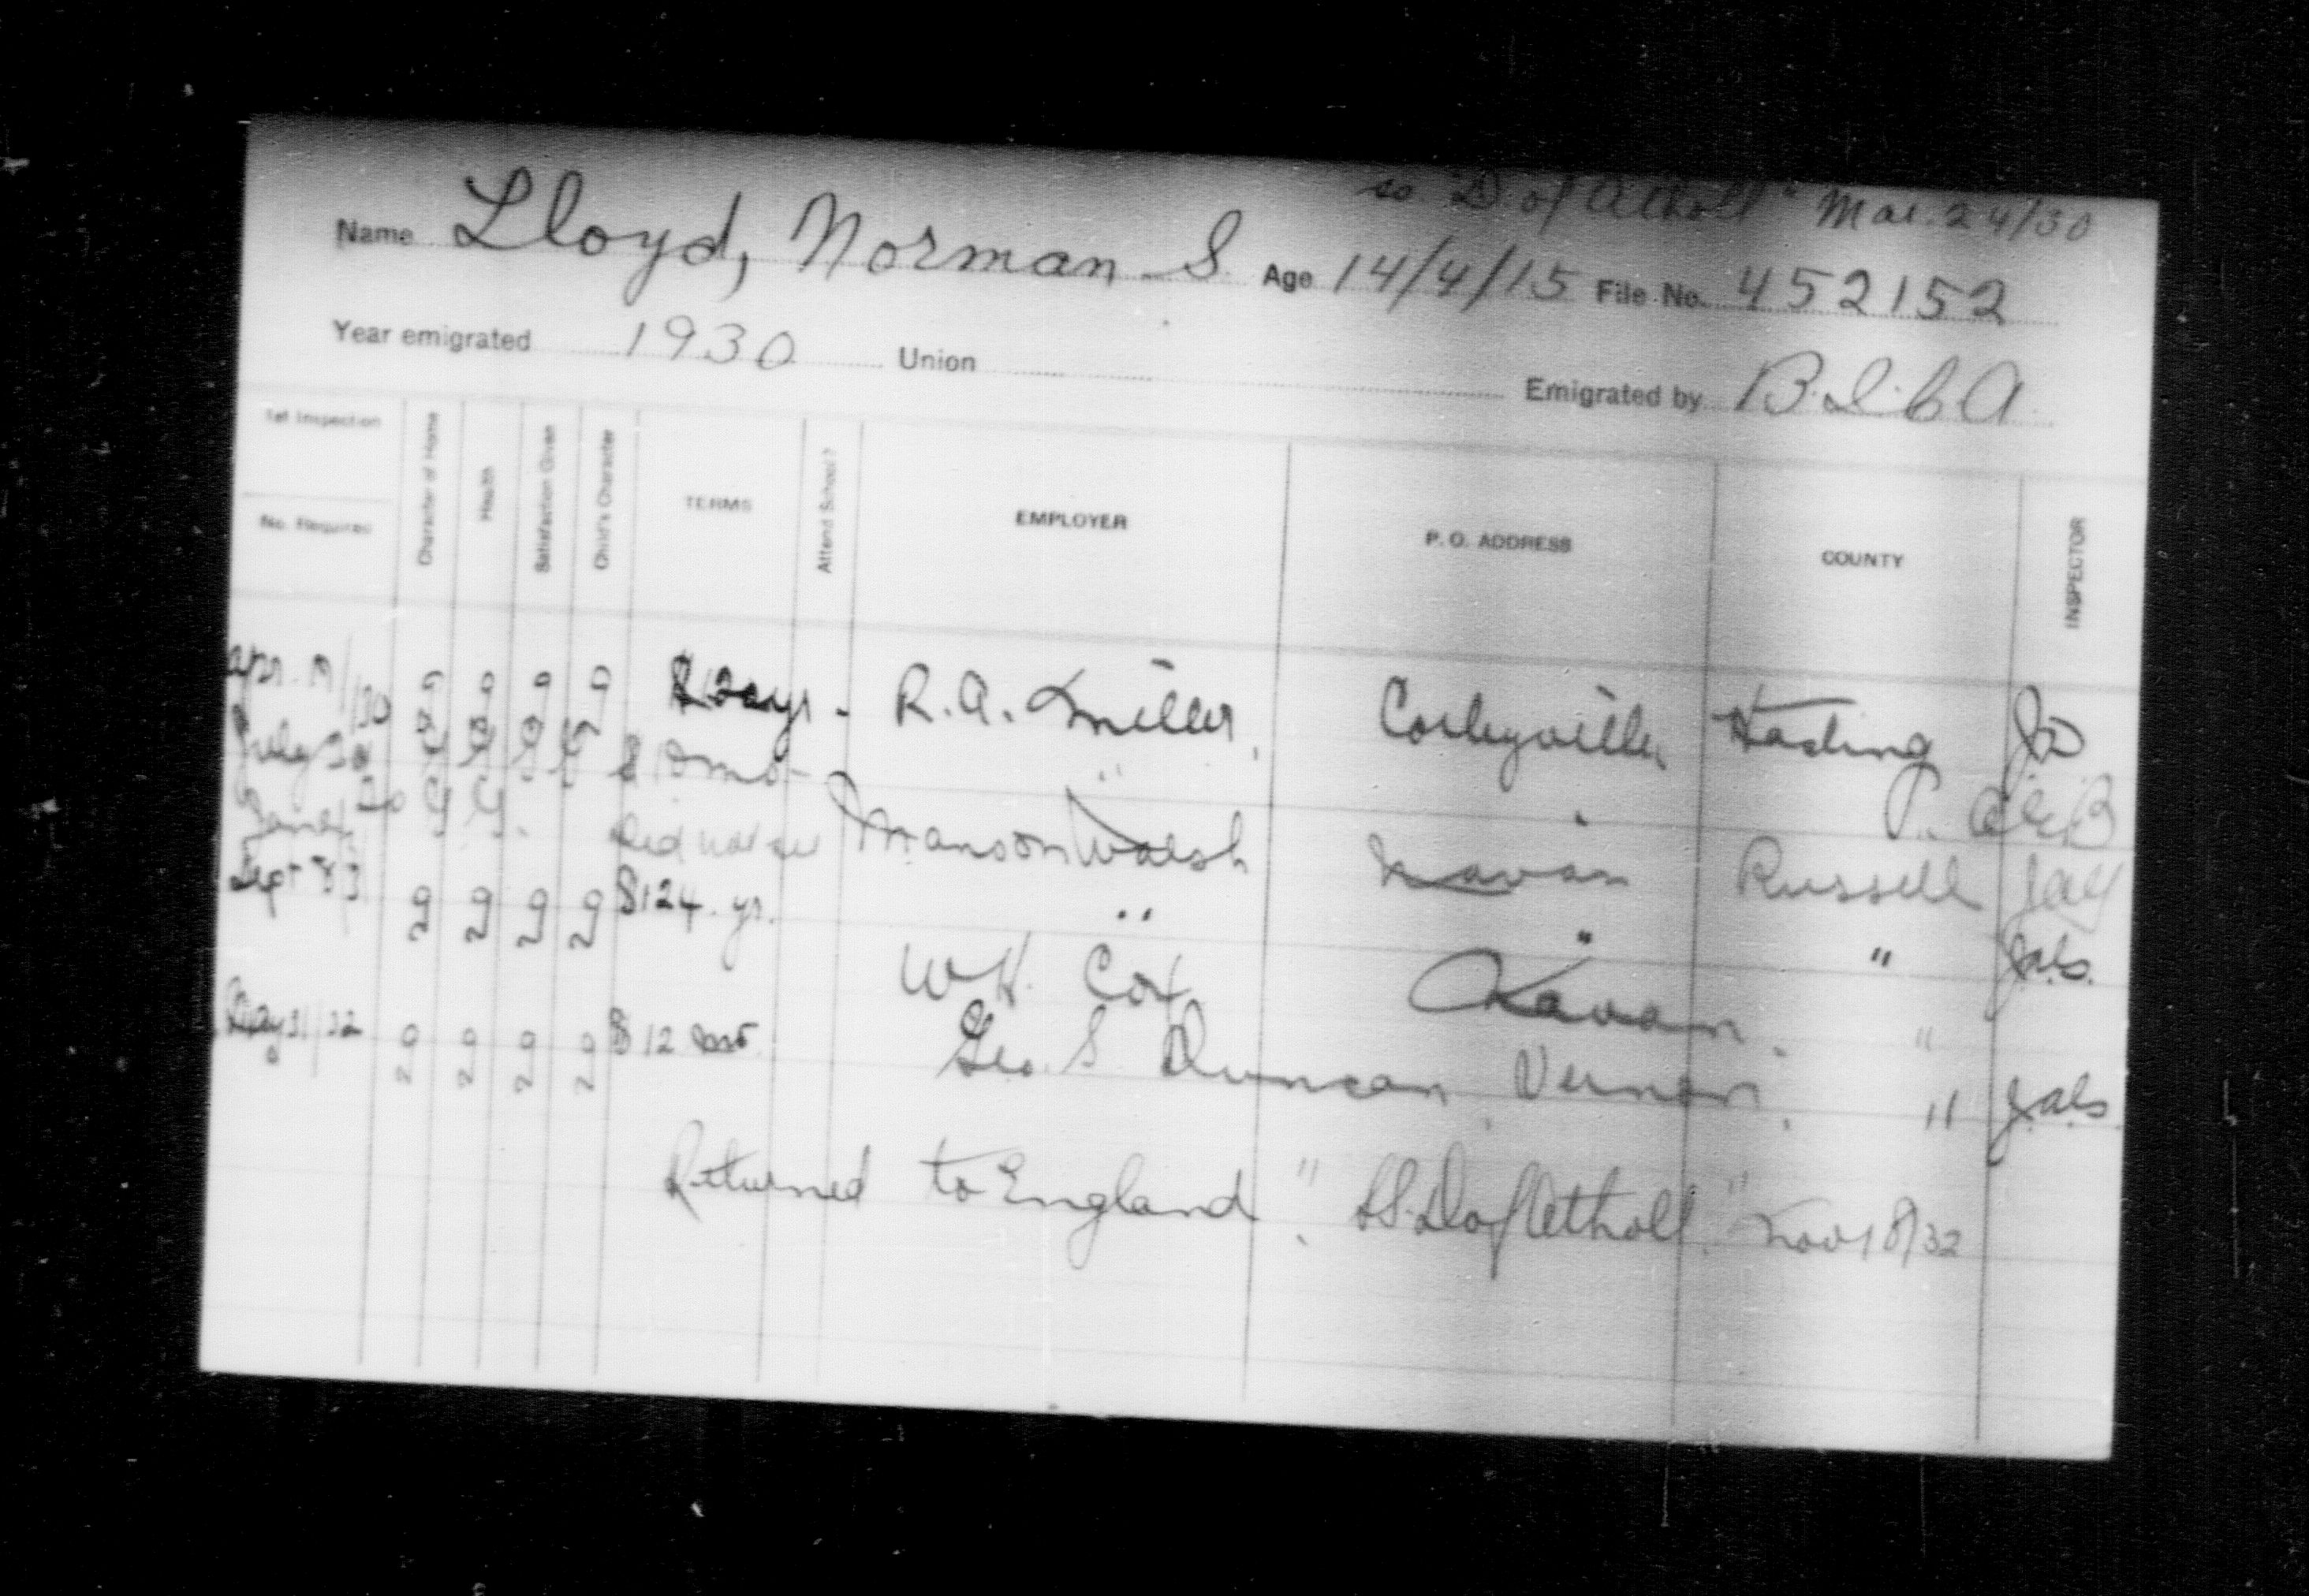 ss "D of Atholl" Mar. 24/30
Name Lloyd, Norman S Age 14/4/15 File No. 452152
Year emigrated 1930 Union Emigrated by B.I.C.A.
1st Inspection
No. Required
Character of Home
Health
Satisfaction Given
Child's Character
TERMS
Attend School?
EMPLOYER
P. O. ADDRESS
COUNTY
INSPECTOR
Apr. /30 g g g g yr - R. A. Miller, Corbyville Hasting
July " 
did not see Manson Walsh Navan Russell
Sept g g g g $124. yr. " " " J.a.S.
W H. Cox Navan. "
May 31/32 g g g g $12 Geo. S. Duncan, Vernon, " J.a.S.
Returned to England, "SS. D of Atholl," Nov 18/32